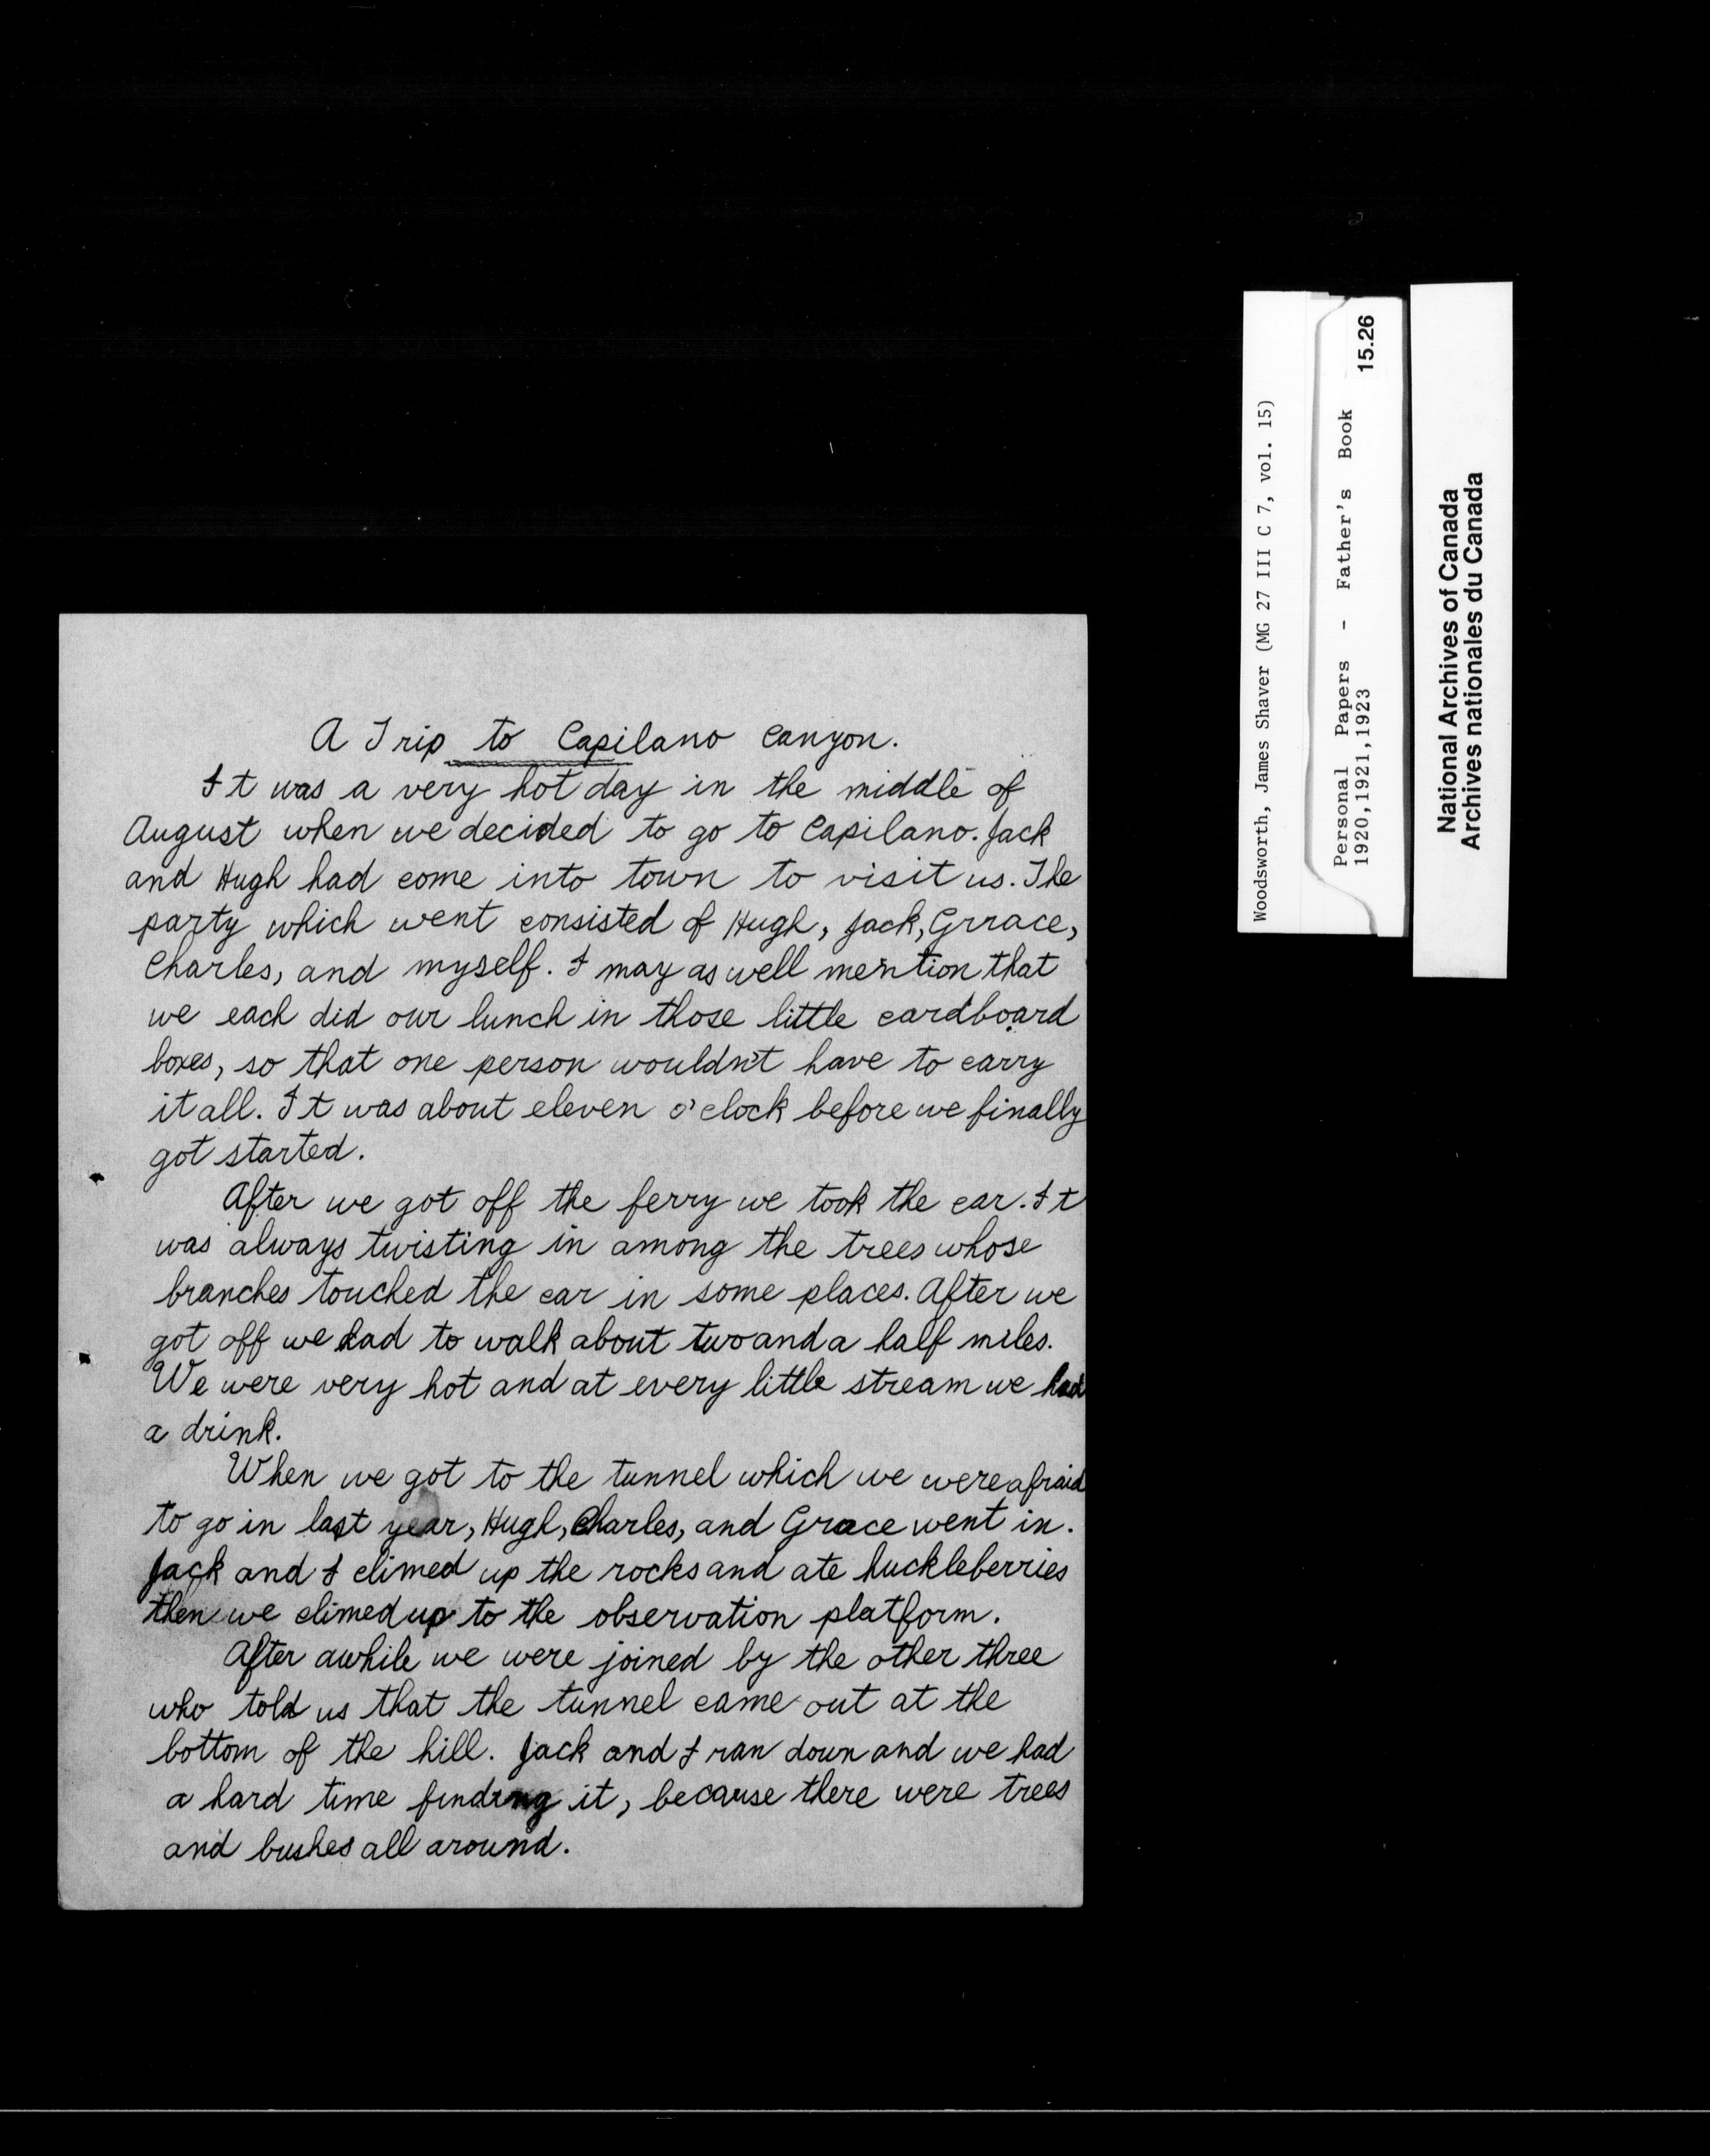 A Trip to Capilano Canyon.
It was a very hot day in the middle of
August when we decided to go to Capilano. Jack
and Hugh had come into town to visit us. The
party which went consisted of Hugh, Jack, Grrace,
Charles, and myself. I may as well mention that
we each did our lunch in those little cardboard
boxes, so that one person wouldn't have to carry
it all. It was about eleven o'clock before we finally
got started.
After we got off the ferry we took the car. It
was always twisting in among the trees whose
branches touched the car in some places. After we
got off we had to walk about two and a half miles.
We were very hot and at every little stream we had
a drink.
When we got to the tunnel which we were afraid
to go in last year, Hugh, Charles, and Grace went in.
Jack and I climed up the rocks and ate huckleberries
then we climed up to the observation platform.
After awhile we were joined by the other three
who told us that the tunnel came out at the
bottom of the hill. Jack and I ran down and we had
a hard time finding it, because there were trees
and bushes all around.
Woodsworth, James Shaver (MG 27 III C 7, vol. 15)
Personal Papers - Father's Book
1920,1921,1923
15.26
National Archives of Canada
Archives nationales du Canada